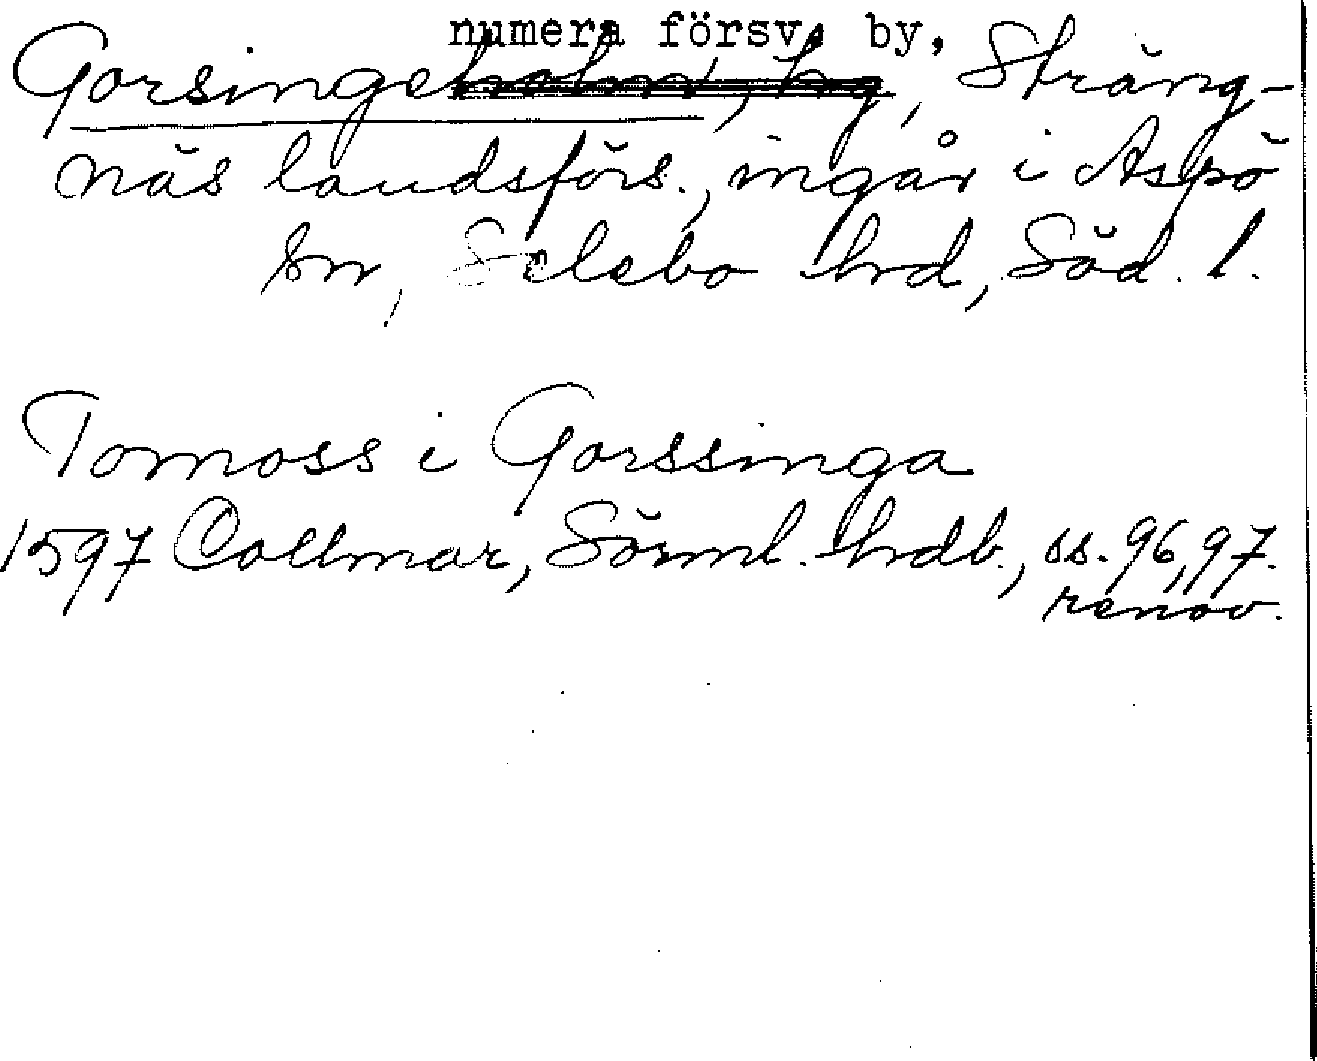 numera försv. by,
Gorsingeholm, hg, Sträng-
näs landsförs., ingår i Aspö
sn, Selebo hrd, Söd. l.
Tomoss i Gorssinga
1597 Collmar, Sörml. hrdb., ss. 96, 97.
renov.